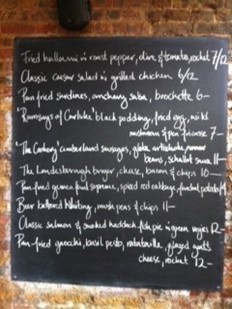 Fried halloumi & roast pepper, olive & tomato, rocket 7/12
Classic caesar salad & grilled chicken 6/12
Pan fried sardines, anchovy salsa, brochette 6-
Ramsays of Carluke black pudding, fried egg,
mushroom & pea fricasse 7-
'The Cadogan' cumberland sausages, globe artichoke, runner
beans, shallot sauce 11-
The Landesborough burger, cheese, bacon & chips 10-
Pan-fried guinea fowl supreme, spiced red cabbage, fondant potato
Beer battered Whiting, mush peas & chips 11-
Classic salmon & smoked haddock, fish pie & green veggies 12-
Pan-fried gnocchi, basil pesto, ratatouille, glazed goats
cheese, rocket 12-